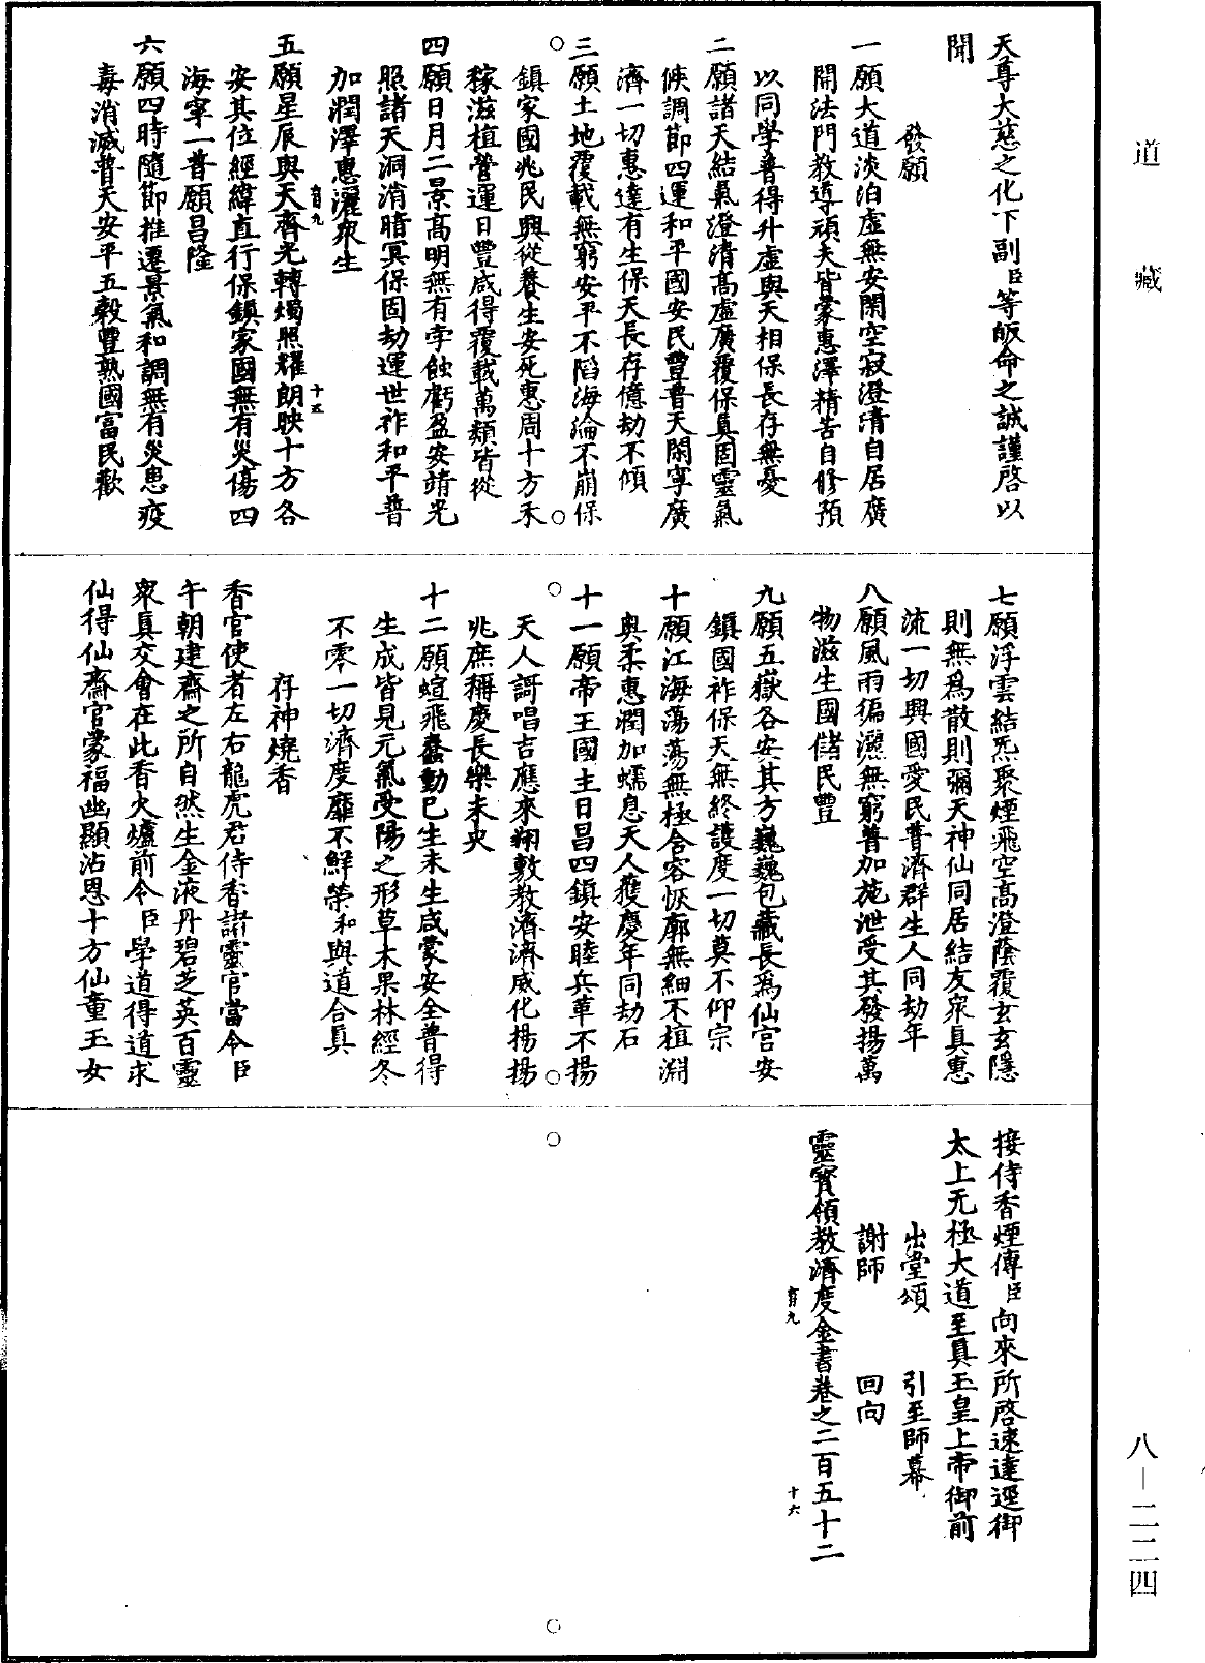 道藏
天尊大慈之化下副臣等皈命之誠謹啓以
聞
發願
一願大道淡泊虛無安閑空寂澄清自居廣
開法門教導頑夫皆蒙惠澤精苦自修預
以同學普得升虛與天相保長存無憂
二願諸天結氣澄清高虛廣覆保真固靈氣
候調節四運和平國安民豐普天閑寧廣
濟一切惠達有生保天長存億劫不傾
三願土地覆載無窮安平不陷海淪不崩保
鎮家國兆民興從養生安死惠周十方禾
稼滋植營運日豐咸得覆載萬類皆從
四願日月二景高明無有孛蝕虧盈安靖光
照諸天洞消暗冥保固劫運世祚和平普
加潤澤惠灑衆生
五願星辰與天齊光轉燭照耀朗映十方各
安其位經緯直行保鎮家國無有災傷四
海寧一普願昌隆
六願四時隨節推遷景氣和調無有災患疫
毒消滅普天安平五穀豐熟國富民歡
十五
七願浮雲結炁聚煙飛空高澄蔭覆玄玄隱
則無爲散則彌天神仙同居結友衆真惠
流一切興國愛民普濟群生人同劫年
八願風雨徧灑無窮普加施泄受其發揚萬
物滋生國儲民豐
九願五嶽各安其方巍巍包藏長爲仙宫安
鎮國祚保天無終護度一切莫不仰宗
十願江海蕩蕩無極含容恢廓無細不植淵
奥柔惠潤加蠕息天人獲慶年同劫石
十一願帝王國主日昌四鎮安睦兵革不揚
天人謌唱吉應來翔敷教濟濟威化揚揚
兆庶稱慶長樂未央
十二願蝖飛蠢動已生未生咸蒙安全普得
生成皆見元氣受陽之形草木果林經冬
不零一切濟度靡不鮮榮和與道合真
存神燒香
香官使者左右龍虎君侍香諸靈官當令臣
午朝建齋之所自然生金液丹碧芝英百靈
衆真交會在此香火爐前令臣學道得道求
仙得仙齋官蒙福幽顯沾恩十方仙童玉女
接侍香煙傳臣向來所啓速達逕御
太上无極大道至真玉皇上帝御前
出堂頌　引至師幕
謝師　回向
靈寶領教濟度金書卷之二百五十二
十六
八—二二四